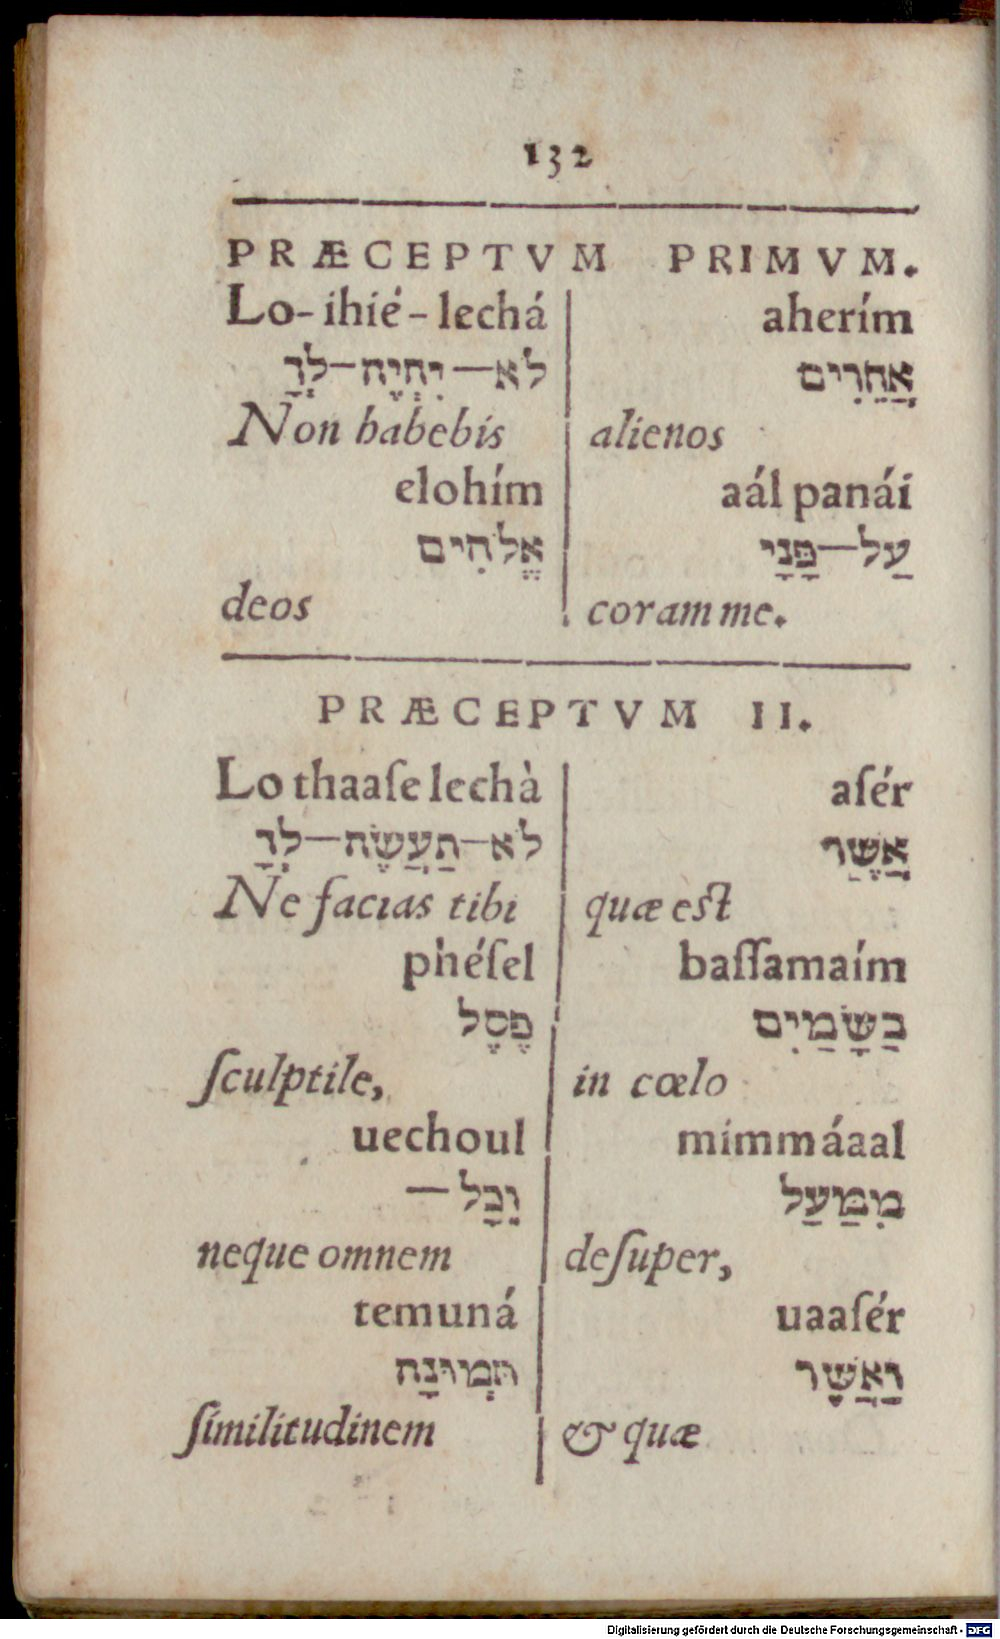 132
PRÆCEPTVM PRIMVM.
Lo-ihié-lechá
לא—יִהְיֶה—לְךָ
Non habebis
elohím
אֱלֹהִים
deos
aherím
אֲחֵרִים
alienos
aál panái
עַל—פָּנָי
coram me.
PRÆCEPTVM II.
Lo thaaſe lechà
לא—תַעֲשֶׂה—לְךָ
Ne facias tibi
phéſel
פֶסֶל
ſculptile,
uechoul
וְכָל—
neque omnem
temuná
תְּמוּנָה
ſimilitudinem
aſér
אֲשֶׁר
quæ eſt
baſſamaím
בַּשָּׁמַיִם
in cœlo
mimmáaal
מִמַּעַל
deſuper,
uaaſér
וַאֲשֶׁר
& quæ
Digitalisierung gefördert durch die Deutsche Forschungsgemeinschaft - DFG